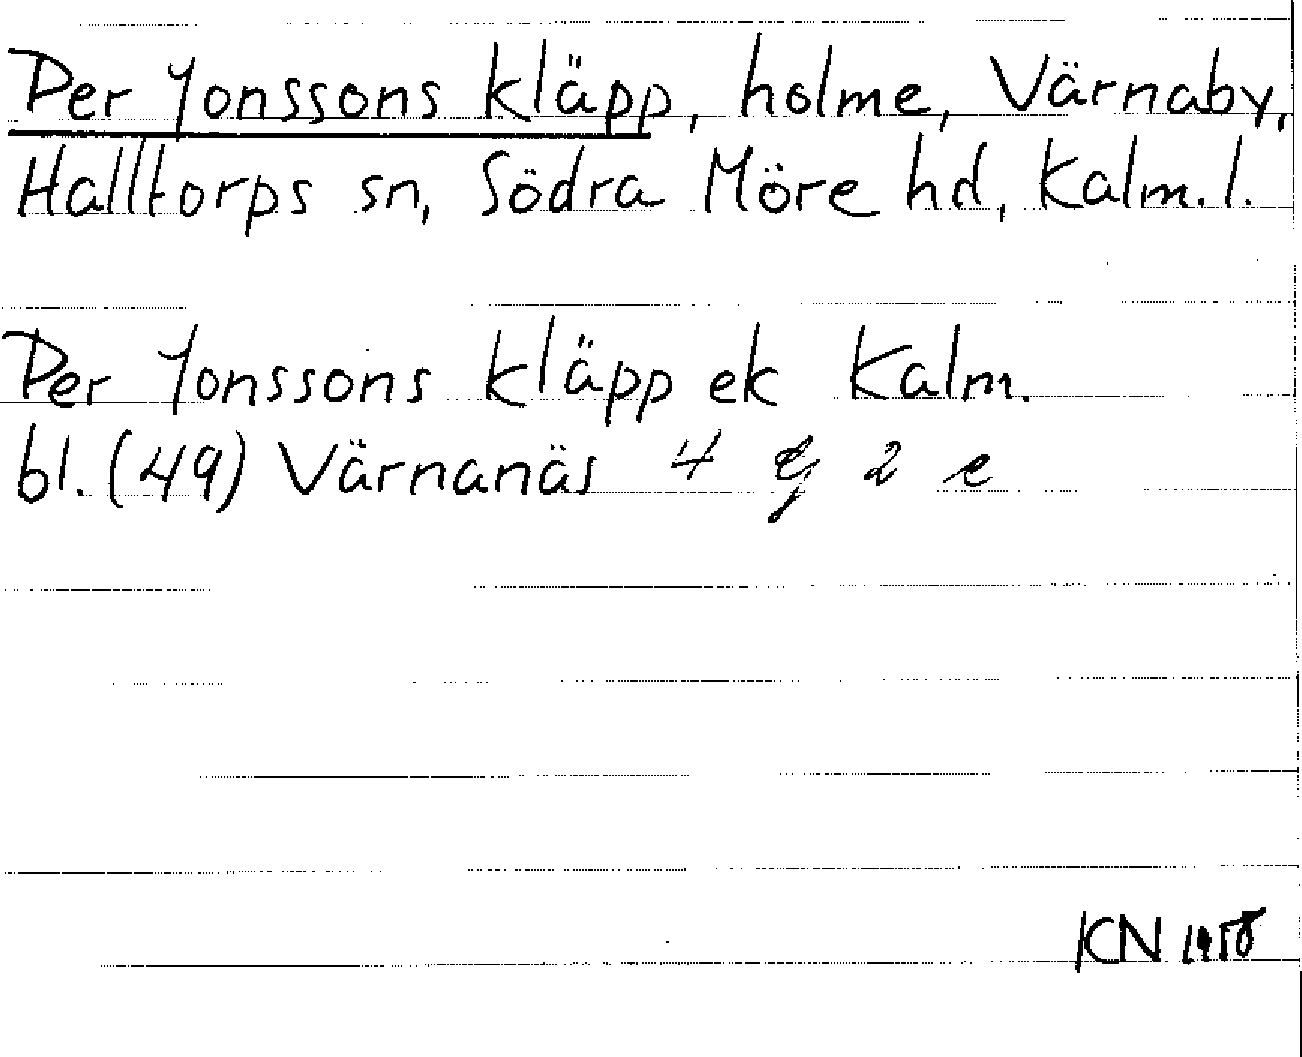 Per Jonssons kläpp, holme, Värnaby,
Halltorps sn, Södra Möre hd, Kalm. l.
Per Jonssons kläpp ek Kalm.
bl. (49) Värnanäs 4 g 2 e
KN 1958